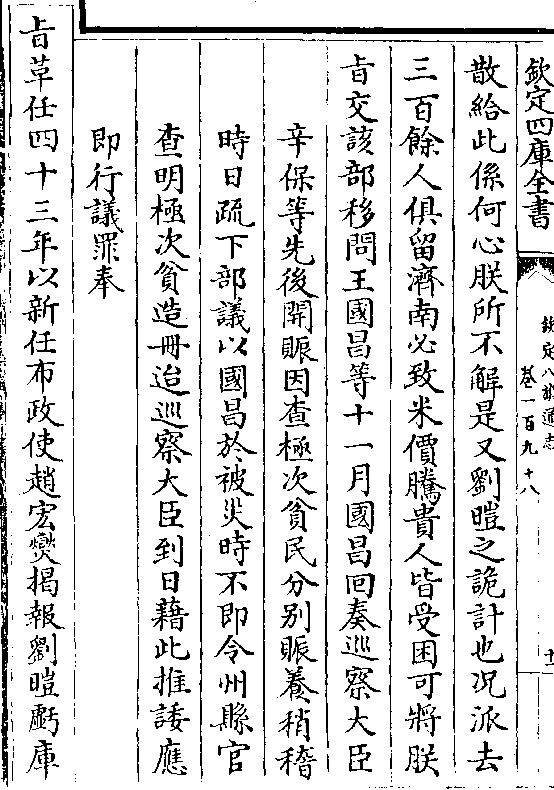 欽定四庫全書
欽定八旗通志
卷一百九十八
散給此係何心朕所不解是又劉暟之詭計也况派去
三百餘人俱留濟南必致米價騰貴人皆受困可將朕
旨交該部移問王國昌等十一月國昌回奏巡察大臣
辛保等先後開賑因查極次貧民分别賑養稍稽
時日疏下部議以國昌於被災時不即令州縣官
查明極次貧造冊迨巡察大臣到日藉此推諉應
即行議罪奉
旨革任四十三年以新任布政使趙宏燮揭報劉暟虧庫